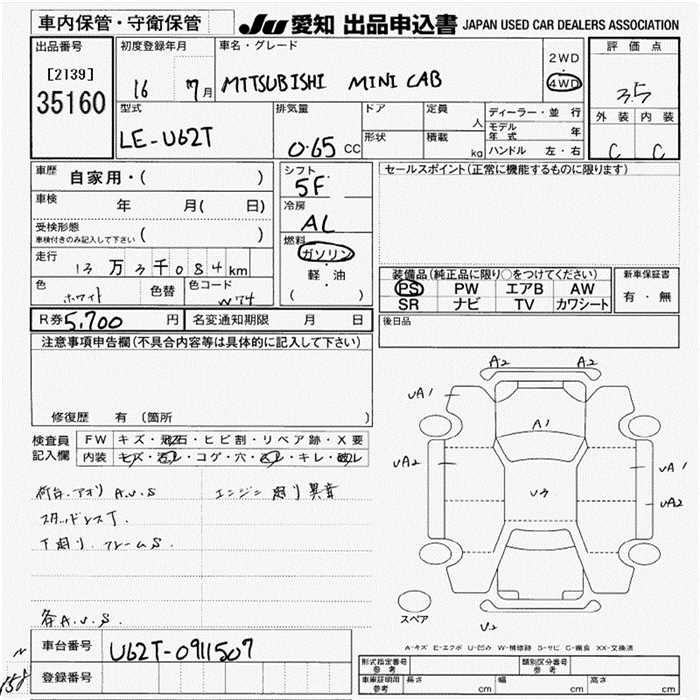 車内保管・守衛保管
JU 愛知 出品申込書 JAPAN USED CAR DEALERS ASSOCIATION
出品番号
[2139]
35160
初度登録年月
16 7月
車名・グレード
MITSUBISHI MINI CAB
2WD
・
4WD
評価点
3.5
外装 内装
C C
型式
LE-U62T
排気量
0.65 CC
ドア
形状
定員
人
積載
kg
ディーラー・並行
モデル年式 年
ハンドル 左・右
車歴 自家用・( )
車検 年 月( 日)
受検形態
車検付きのみ記入して下さい ( )
走行
13万3千084km
色 ホワイト 色替
色コード W74
シフト
5F
冷房
AC
燃料
ガソリン
・
軽・油
( )
セールスポイント(正常に機能するものに限ります)
装備品(純正品に限り○をつけてください)
PS PW エアB AW
SR ナビ TV カワシート
新車保証書
有・無
R券 5,700 円 名変通知期限 月 日
後日品
注意事項申告欄(不具合内容等は具体的に記入して下さい)
修復歴 有 (箇所 )
検査員記入欄
FW キズ・飛石・ヒビ割・リペア跡・X要
内装 キズ・汚レ・コゲ・穴・凹レ・キレ・破レ
荷台.アオリ A.U.S エンジン 走り異音
スタッドレスT.
下廻り.フレームS.
各A.U.S.
車台番号 U62T-0911507
登録番号
A2 A2
UA1
A1
UA2
U3
UA1
UA2
スペア
U2
A-キズ E-エクボ U-凹み W-補修跡 S-サビ C-腐食 XX-交換済
型式指定番号
参考
類別区分番号
参考
車庫証明用
参考
長さ cm
幅 cm
高さ cm